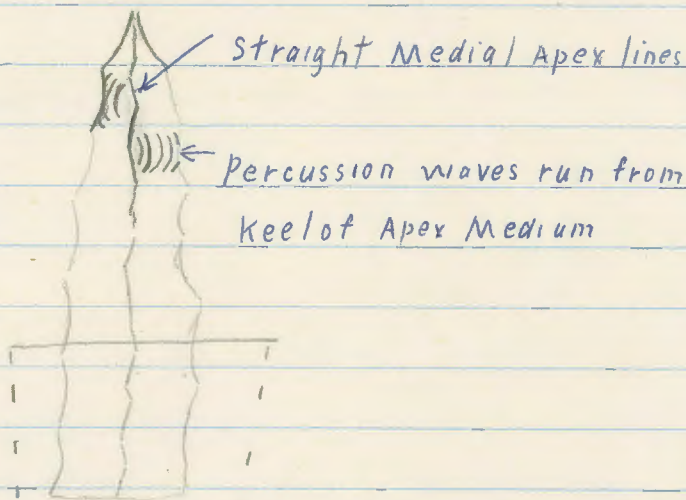 Straight Medial Apex lines
Percussion waves run from
Keel of Apex Medium